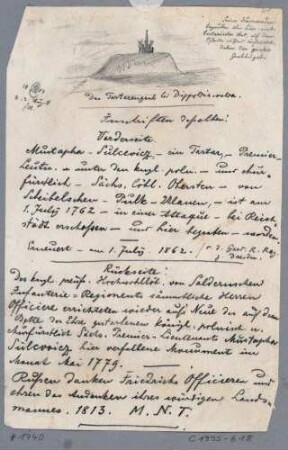 Das Tartarengrab bei Dippoldiswalde.
Inschriften desselben:
Vorderseite
Mustapha - Sulcovicz, - ein Tartar, - Premier-
Leutn. - unter den kngl. poln. - und chur-
fürstlich - Sächs. Löbl. Obersten - von
Schiebelschen - Pulk - Ulanen, - ist am
1. July 1762 - in einer Attaque - bei Reich-
städt erschossen - und hier begraben - worden.
Erneuert - am 1. July 1862.
Rückseite:
Des kngl. preuß. Hochlöbl. von Saldernschen
Infanterie-Regiments sämmtliche Herren
Officiere errichteten wieder aufs Neue das auf dem
Bette der Ehre gestorbenen königl. polnisch u.
churfürstlich Sächs. Premier-Lieutenants Mustapha
Sulcovicz hier verfallene Monument im
Monat Mei 1779.
Rußen danken Friedrichs Officieren und
ehren das Andenken ihres würdigen Lands-
mannes. 1813. M. N. T.
# 1940
C 1995-618